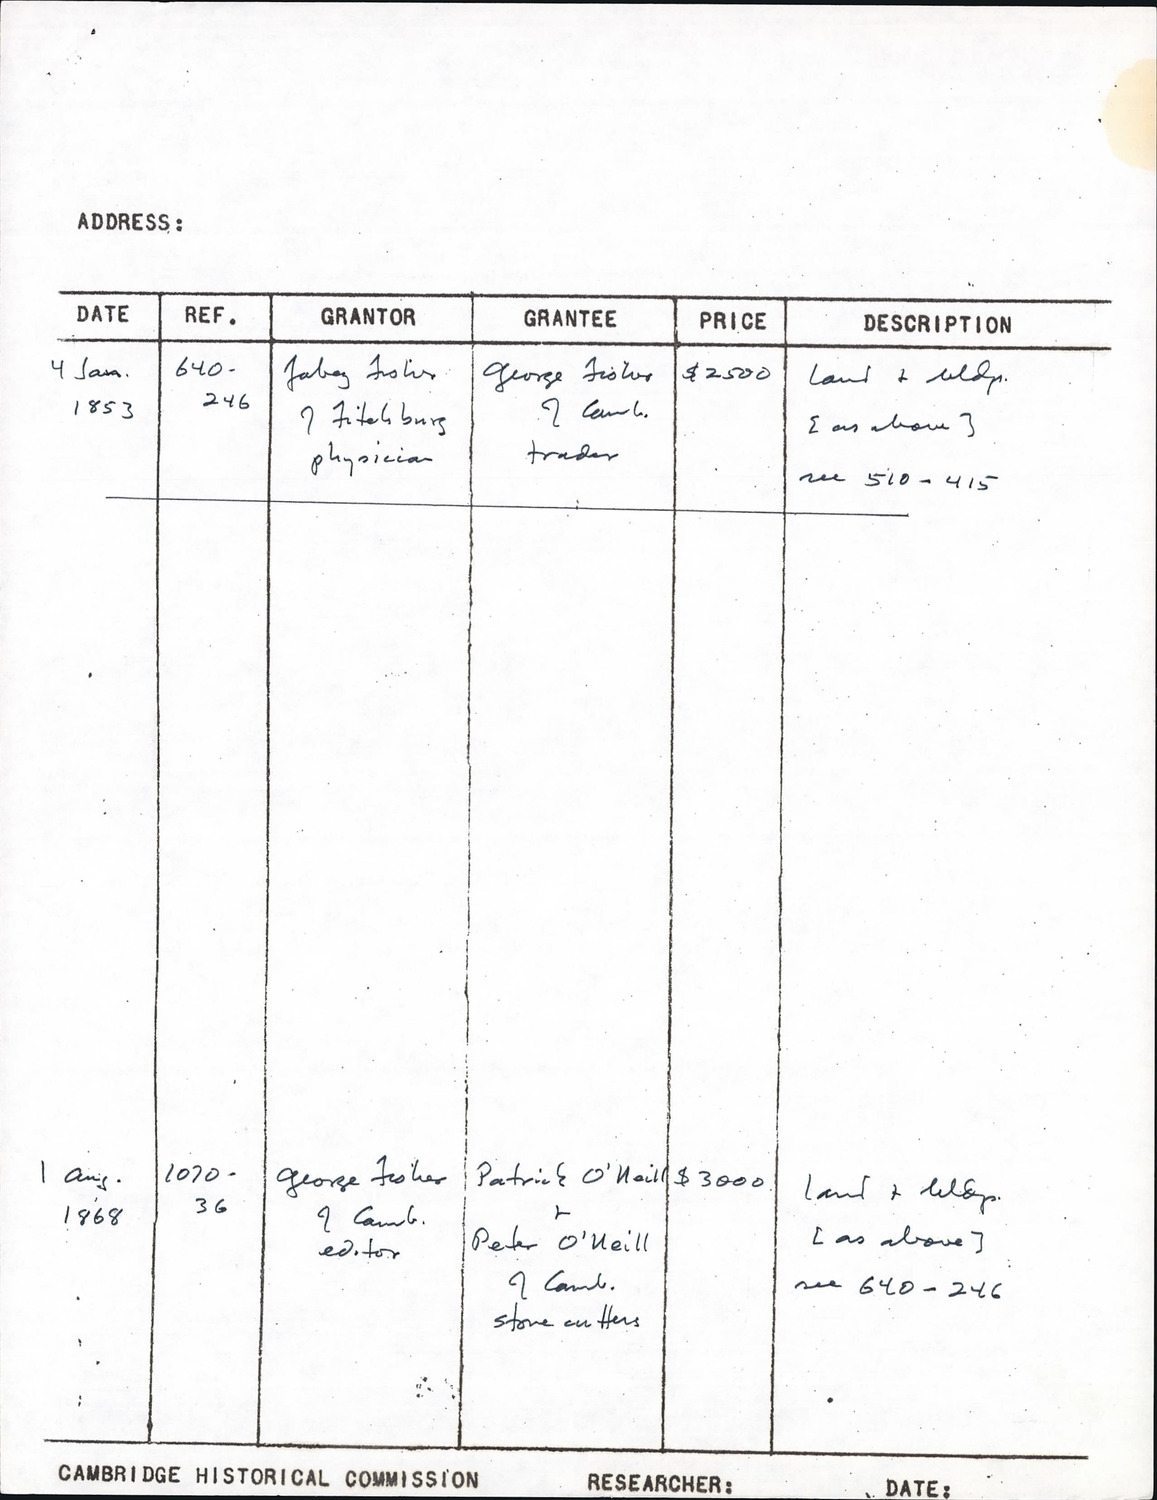 ADDRESS:
DATE REF. GRANTOR GRANTEE PRICE DESCRIPTION
4 Jan. 640- Jabez Fisher George Fisher $2500 land & bldgs.
1853 246 of Fitchburg of Camb. [as above]
physician trader see 510-415
1 Aug. 1070- George Fisher Patrick O'Neill $3000 land & bldgs.
1868 36 of Camb. & [as above]
editor Peter O'Neill see 640-246
of Camb.
stone cutters
CAMBRIDGE HISTORICAL COMMISSION RESEARCHER: DATE: